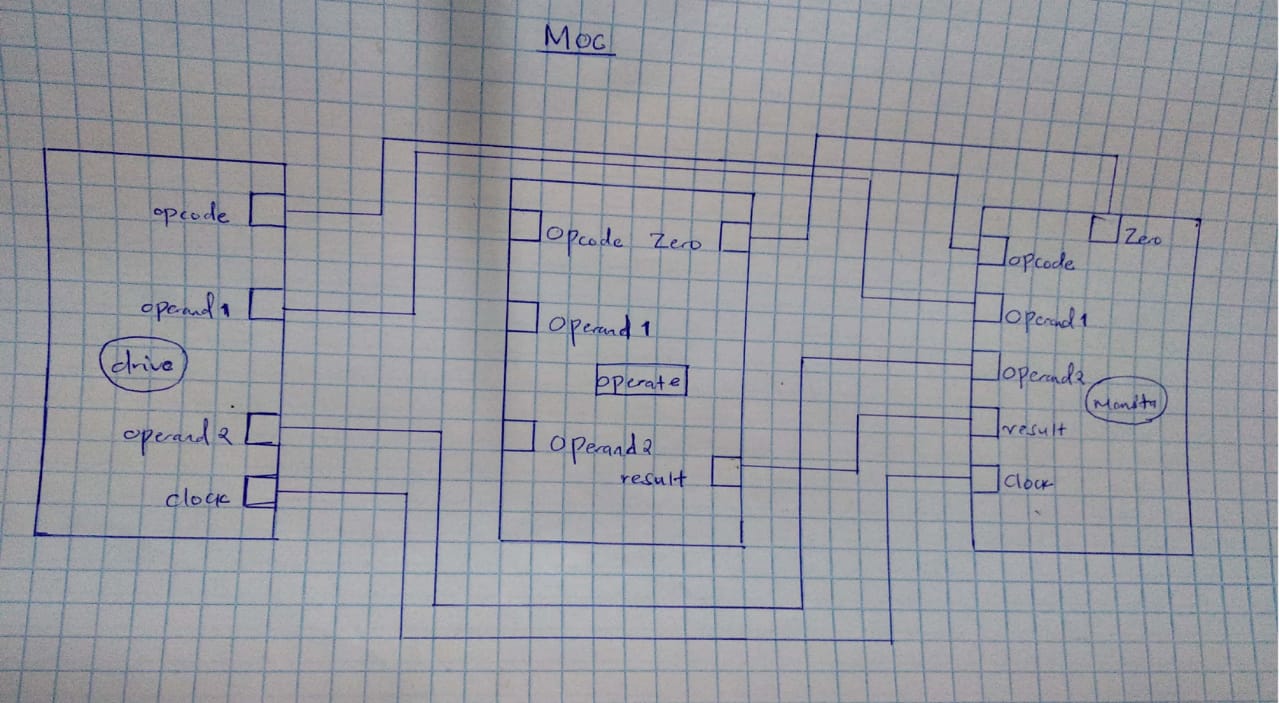 Moc
opcode
operand 1
drive
operand 2
clock
opcode Zero
operand 1
operate
operand 2
result
Zero
opcode
operand 1
operand 2
result
clock